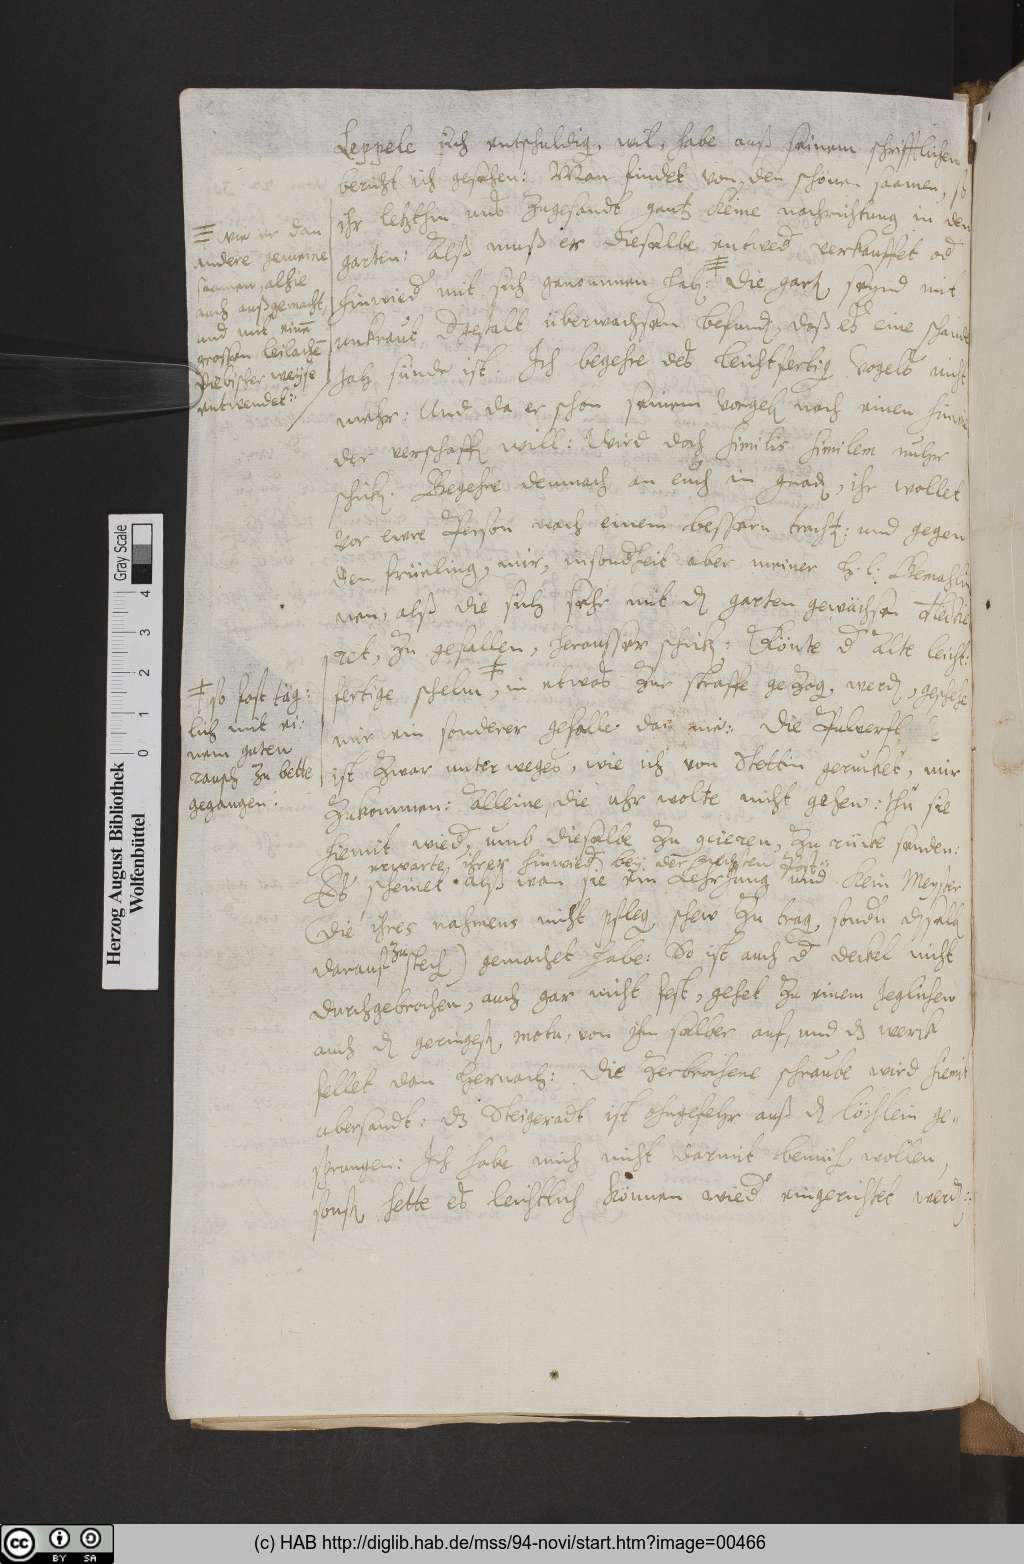 Leppele sich entschuldig. wil, habe auß seinem schrifftlichen
bericht ich gesehen: Man findet von den schönen saamen, so
ihr letzthin unß zugesandt gantz keine nachrichtung in dem
garten: Alß muß er dieselbe entwed verkauffet od
hinwied mit sich genommen hab: Die gart. seynd mit
unkraut dgestalt überwachsen befund, daß es eine schande
ist. Ich begehre des leichtfertig. Vogels nicht
mehr: Und da er schon seinem Vorgeb. nach einen
verschaff. will: Wird doch similis similem
schick. Begehre demnach an euch in gnad, ihr wollet
vor ewre Person nach einem bessern tracht: und gegen
den früeling, mir, insondheit aber meiner h. l: Gemahlin
nen, alß die sich sehr mit d garten gewächsen
ret, zu gefallen, herausser schick: Könte d alte leicht:
fertige schelm, in etwas zur straffe gezog. werd, geschehe
mir ein sonderer gefalle: daran: Die
ist zwar unterweges, wie ich von Stettin gerucket, mir
zukommen: Alleine, die uhr wolte nicht gehen: thu sie
hiemit wied, umb dieselbe zu zu rücke senden:
erwarte ihrer hinwied bey der nechsten Post:
Es scheinet alß wan sie ein Lehrjung und kein Meyster
(die ihres nahmens nicht pfleg. schew zu trag. sondn
darauff zu stech) gemachet habe: So ist auch d deckel nicht
durchgebrochen, auch gar nicht fest, gehet zu einem jeglichen
auch d geringest. motu, von ihm selber auf, und dz werck
fellet dan hernach: Die zerbrochene schraube wird hiemit
ubersandt: dz Steigeradt ist ohngefehr auß d löchlein ge-
sprungen: Ich habe mich nicht darmit bemüh. wollen,
sonst hette es leichtlich können wied eingerichtet werd::
wie er dan
andere gemeine
saamen, alhie
auch außgemacht,
und mit einem
grossen leilachen
diebischer weyse
entwendet::
so fast täg:
lich mit ei:
nem guten
rausch zu bette
gegangen:
Herzog August Bibliothek
Wolfenbüttel
Gray Scale
0 1 2 3 4
(c) HAB http://diglib.hab.de/mss/94-novi/start.htm?image=00466
cc BY SA